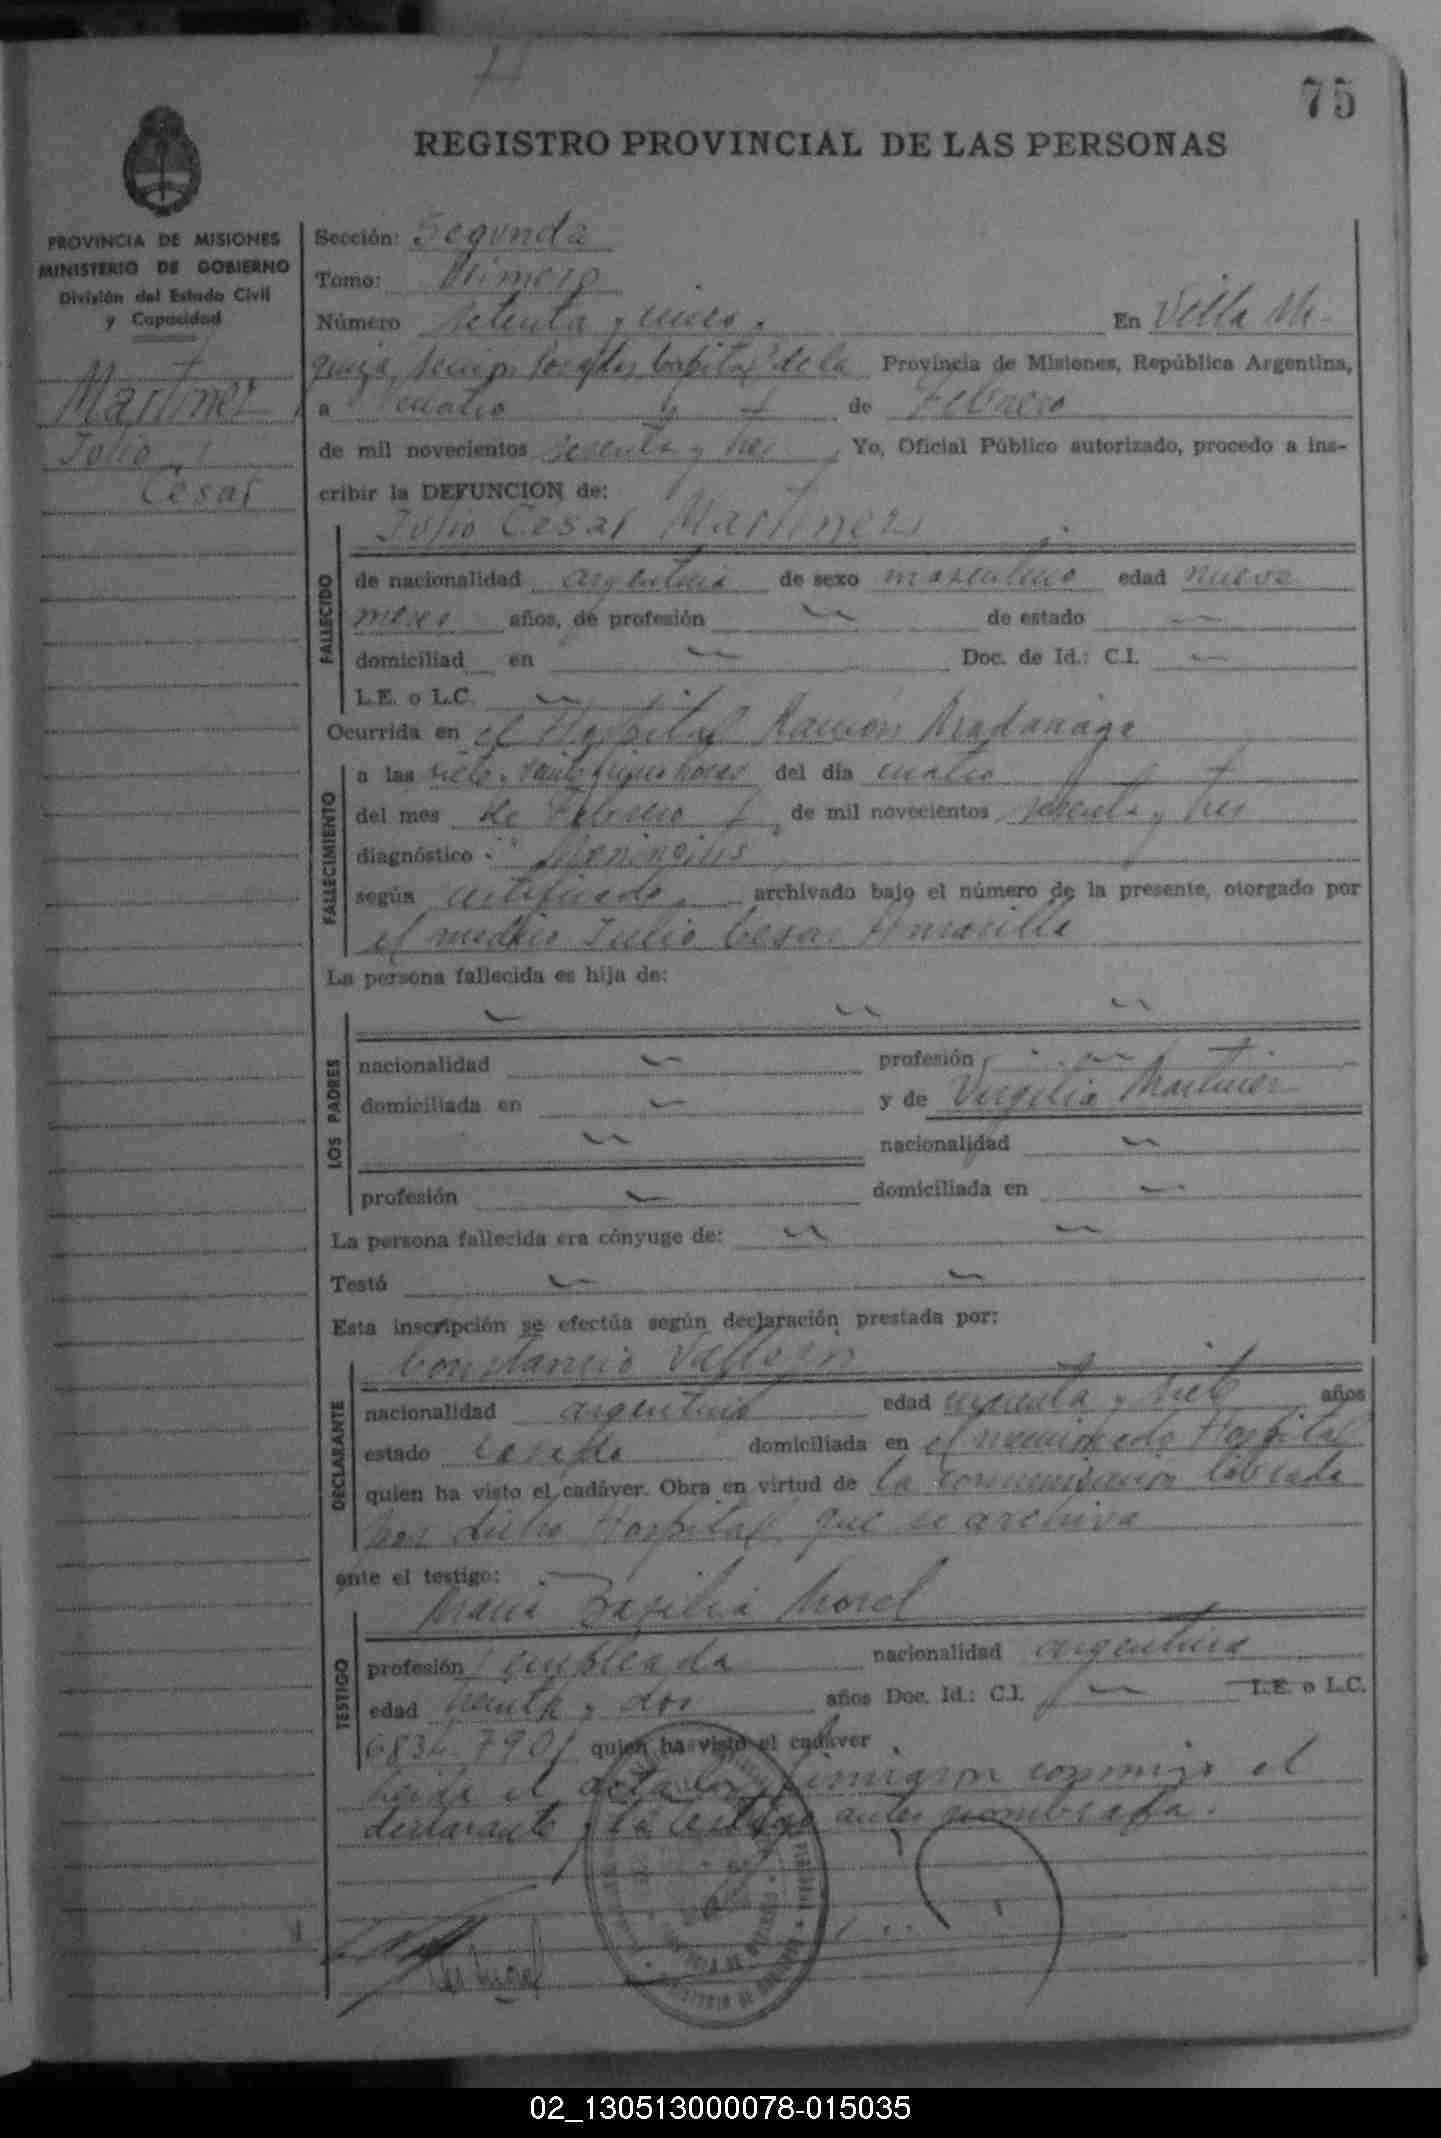 75
REGISTRO PROVINCIAL DE LAS PERSONAS
PROVINCIA DE MISIONES
MINISTERIO DE GOBIERNO
División del Estado Civil
y Capacidad
Martinez
Julio
Cesar
Sección: Segunda
Tomo: Primero
Número setenta y cinco. En Villa
Posadas Capital de la Provincia de Misiones, República Argentina,
a cuatro de Febrero
de mil novecientos sesenta y tres, Yo, Oficial Público autorizado, procedo a ins-
cribir la DEFUNCION de:
Julio Cesar Martinez
FALLECIDO
de nacionalidad argentina de sexo masculino edad nueve
meses años, de profesión de estado
domiciliad en Doc. de Id.: C.I.
L.E. o L.C.
Ocurrida en el Hospital Ramón Madariaga
FALLECIMIENTO
a las siete y horas del día cuatro
del mes de Febrero de mil novecientos sesenta y tres
diagnóstico Meningitis
según certificado, archivado bajo el número de la presente, otorgado por
el medico Julio Cesar Amarilla
La persona fallecida es hija de:
LOS PADRES
nacionalidad profesión
domiciliada en y de Virgilia Martinez
nacionalidad
profesión domiciliada en
La persona fallecida era cónyuge de:
Testó
Esta inscripción se efectúa según declaración prestada por:
DECLARANTE
Constancio Vallejos
nacionalidad argentino edad y siete años
estado casado domiciliada en el Hospital
quien ha visto el cadáver. Obra en virtud de la comunicación librada
por dicho Hospital que se archiva
ante el testigo:
TESTIGO
Maria Basilia Morel
profesión empleada nacionalidad argentina
edad treinta y dos años Doc. Id.: C.I. L.E. o L.C.
6834.790 quien ha visto el cadáver
Leida el acta la firmaron conmigo el
declarante y la testigo antes nombrada.
02_130513000078-015035